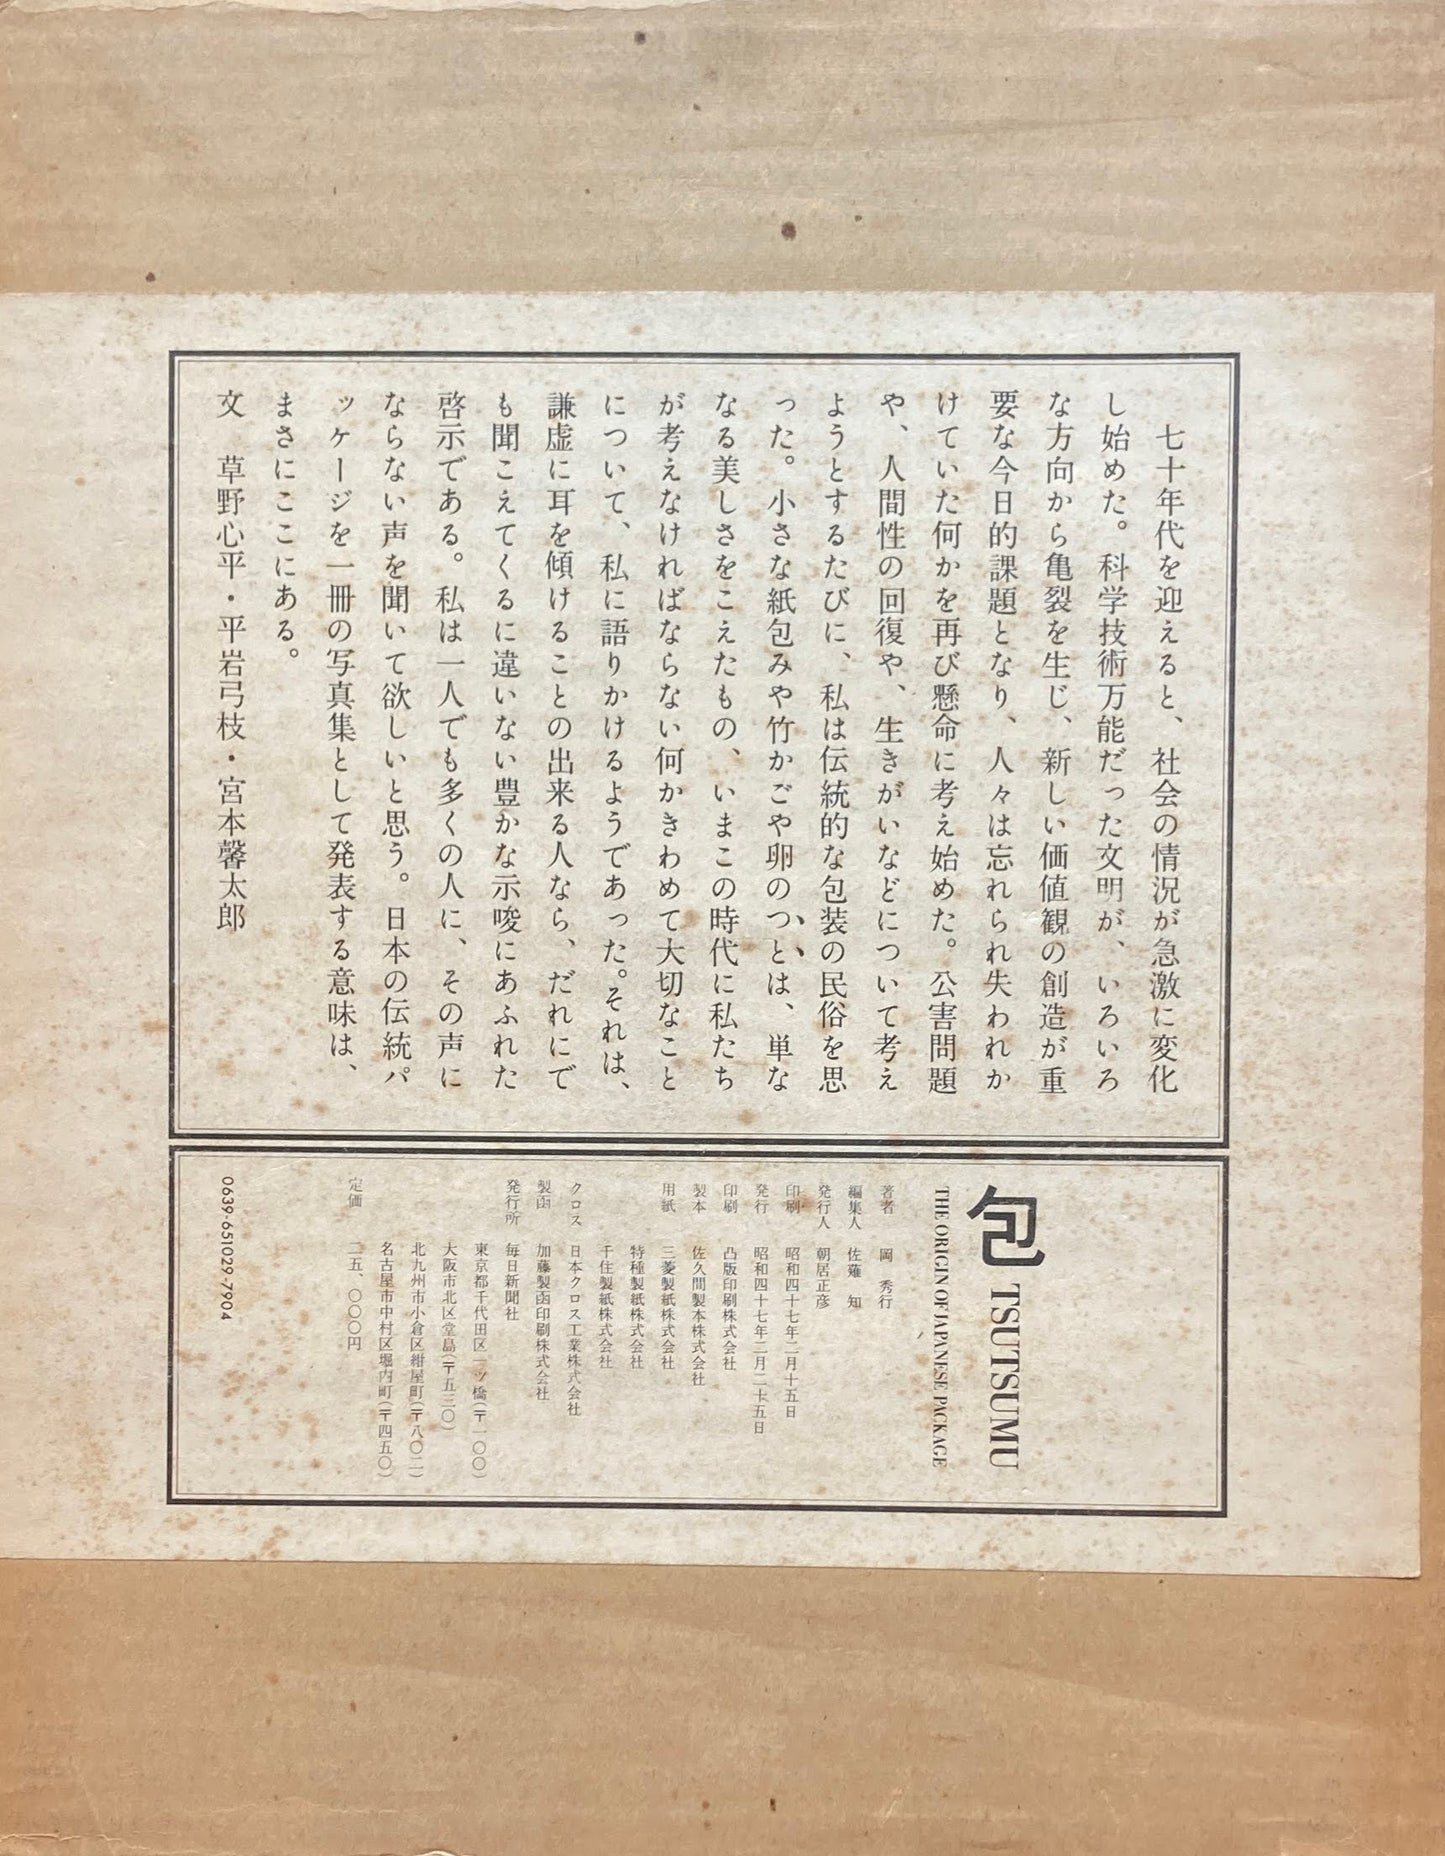 七十年代を迎えると、社会の情況が急激に変化
し始めた。科学技術万能だった文明が、いろいろ
な方向から亀裂を生じ、新しい価値観の創造が重
要な今日的課題となり、人々は忘れられ失われか
けていた何かを再び懸命に考え始めた。公害問題
や、人間性の回復や、生きがいなどについて考え
ようとするたびに、私は伝統的な包装の民俗を思
った。小さな紙包みや竹かごや卵のつとは、単な
なる美しさをこえたもの、いまこの時代に私たち
が考えなければならない何かきわめて大切なこと
について、私に語りかけるようであった。それは、
謙虚に耳を傾けることの出来る人なら、だれにで
も聞こえてくるに違いない豊かな示唆にあふれた
啓示である。私は一人でも多くの人に、その声に
ならない声を聞いて欲しいと思う。日本の伝統パ
ッケージを一冊の写真集として発表する意味は、
まさにここにある。
文　草野心平・平岩弓枝・宮本馨太郎
包 TSUTSUMU
THE ORIGIN OF JAPANESE PACKAGE
著者　岡　秀行
編集人　佐薙　知
発行人　朝居正彦
印刷　昭和四十七年二月十五日
発行　昭和四十七年二月二十五日
印刷　凸版印刷株式会社
製本　佐久間製本株式会社
用紙　三菱製紙株式会社
特種製紙株式会社
千住製紙株式会社
クロス　日本クロス工業株式会社
製函　加藤製函印刷株式会社
発行所　毎日新聞社
東京都千代田区一ツ橋(〒一〇〇)
大阪市北区堂島(〒五三〇)
北九州市小倉区紺屋町(〒八〇二)
名古屋市中村区堀内町(〒四五〇)
定価　二五、〇〇〇円
0639-651029-7904